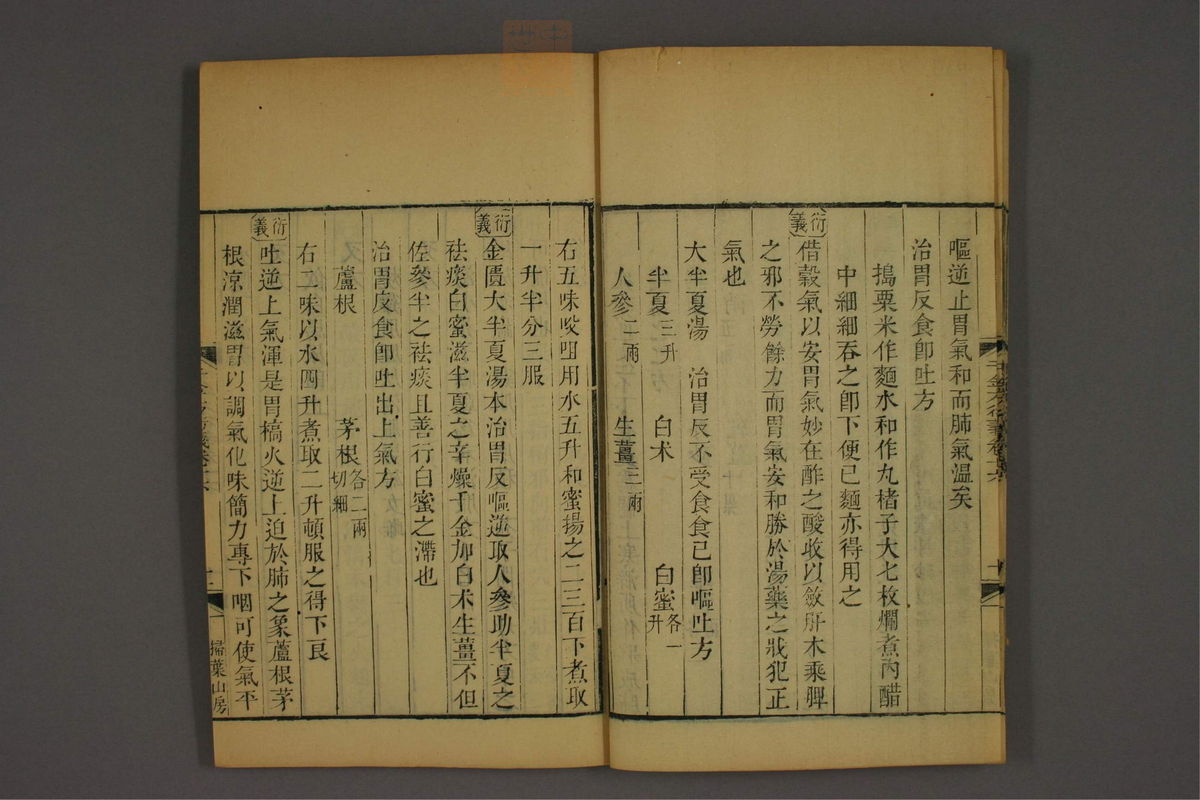 嘔逆止胃氣和而肺氣溫矣
治胃反食卽吐方
搗粟米作麵水和作丸楮子大七枚爛煮內醋
中細細吞之卽下便已麵亦得用之
衍義
借穀氣以安胃氣妙在酢之酸收以斂肝木乘脾
之邪不勞餘力而胃氣安和勝於湯藥之戕犯正
氣也
大半夏湯 治胃反不受食食已卽嘔吐方
半夏三升 白朮 白蜜各一升
人參二兩 生薑三兩
右五味㕮咀用水五升和蜜揚之二三百下煮取
一升半分三服
衍義
金匱大半夏湯本治胃反嘔逆取人參助半夏之
祛痰白蜜滋半夏之辛燥千金加白朮生薑不但
佐參半之祛痰且善行白蜜之滯也
治胃反食卽吐出上氣方
蘆根 茅根各二兩切細
右二味以水四升煮取二升頓服之得下良
衍義
吐逆上氣渾是胃槁火逆上迫於肺之象蘆根茅
根涼潤滋胃以調氣化味簡力專下咽可使氣平
掃葉山房